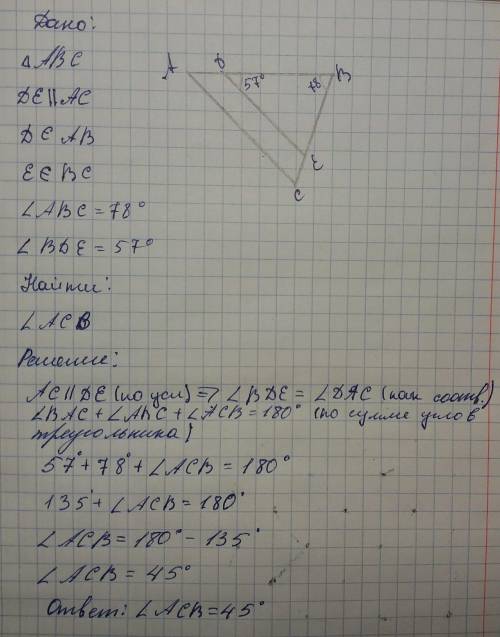 Дано:
△ABC
DE||AC
D∈AB
E∈BC
∠ABC = 78°
∠BDE = 57°
Найти:
∠ACB
A D B
57° 78
E
C
Решение:
AC||DE (по усл) => ∠BDE = ∠DAC (как соотв.)
∠BAC + ∠ABC + ∠ACB = 180° (по сумме углов
треугольника)
57° + 78° + ∠ACB = 180°
135° + ∠ACB = 180°
∠ACB = 180° - 135°
∠ACB = 45°
Ответ: ∠ACB = 45°